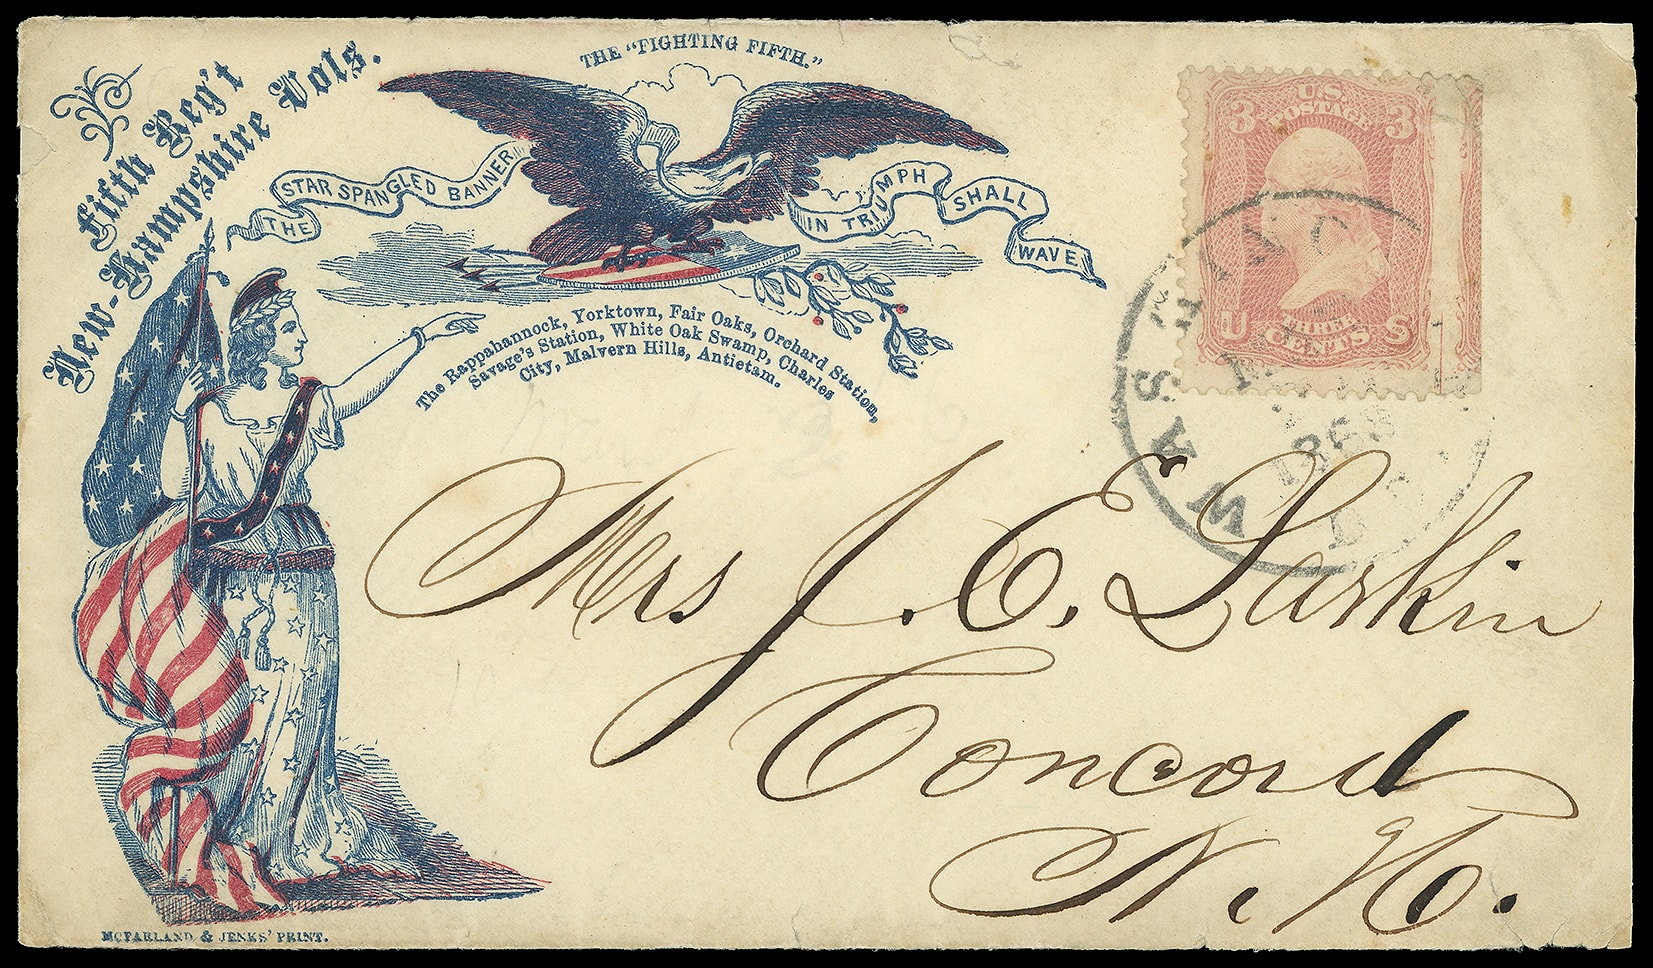 THE "FIGHTING FIFTH."
Fifth Reg't
New-Hampshire Vols.
THE STAR SPANGLED BANNER IN TRIUMPH SHALL WAVE
The Rappahannock, Yorktown, Fair Oaks, Orchard Station,
Savage's Station, White Oak Swamp, Charles
City, Malvern Hills, Antietam.
3 U.S. POSTAGE 3
U THREE CENTS S
WAS
1863
D
Mrs J. E. Larkin
Concord
N. H.
MCFARLAND & JENKS' PRINT.